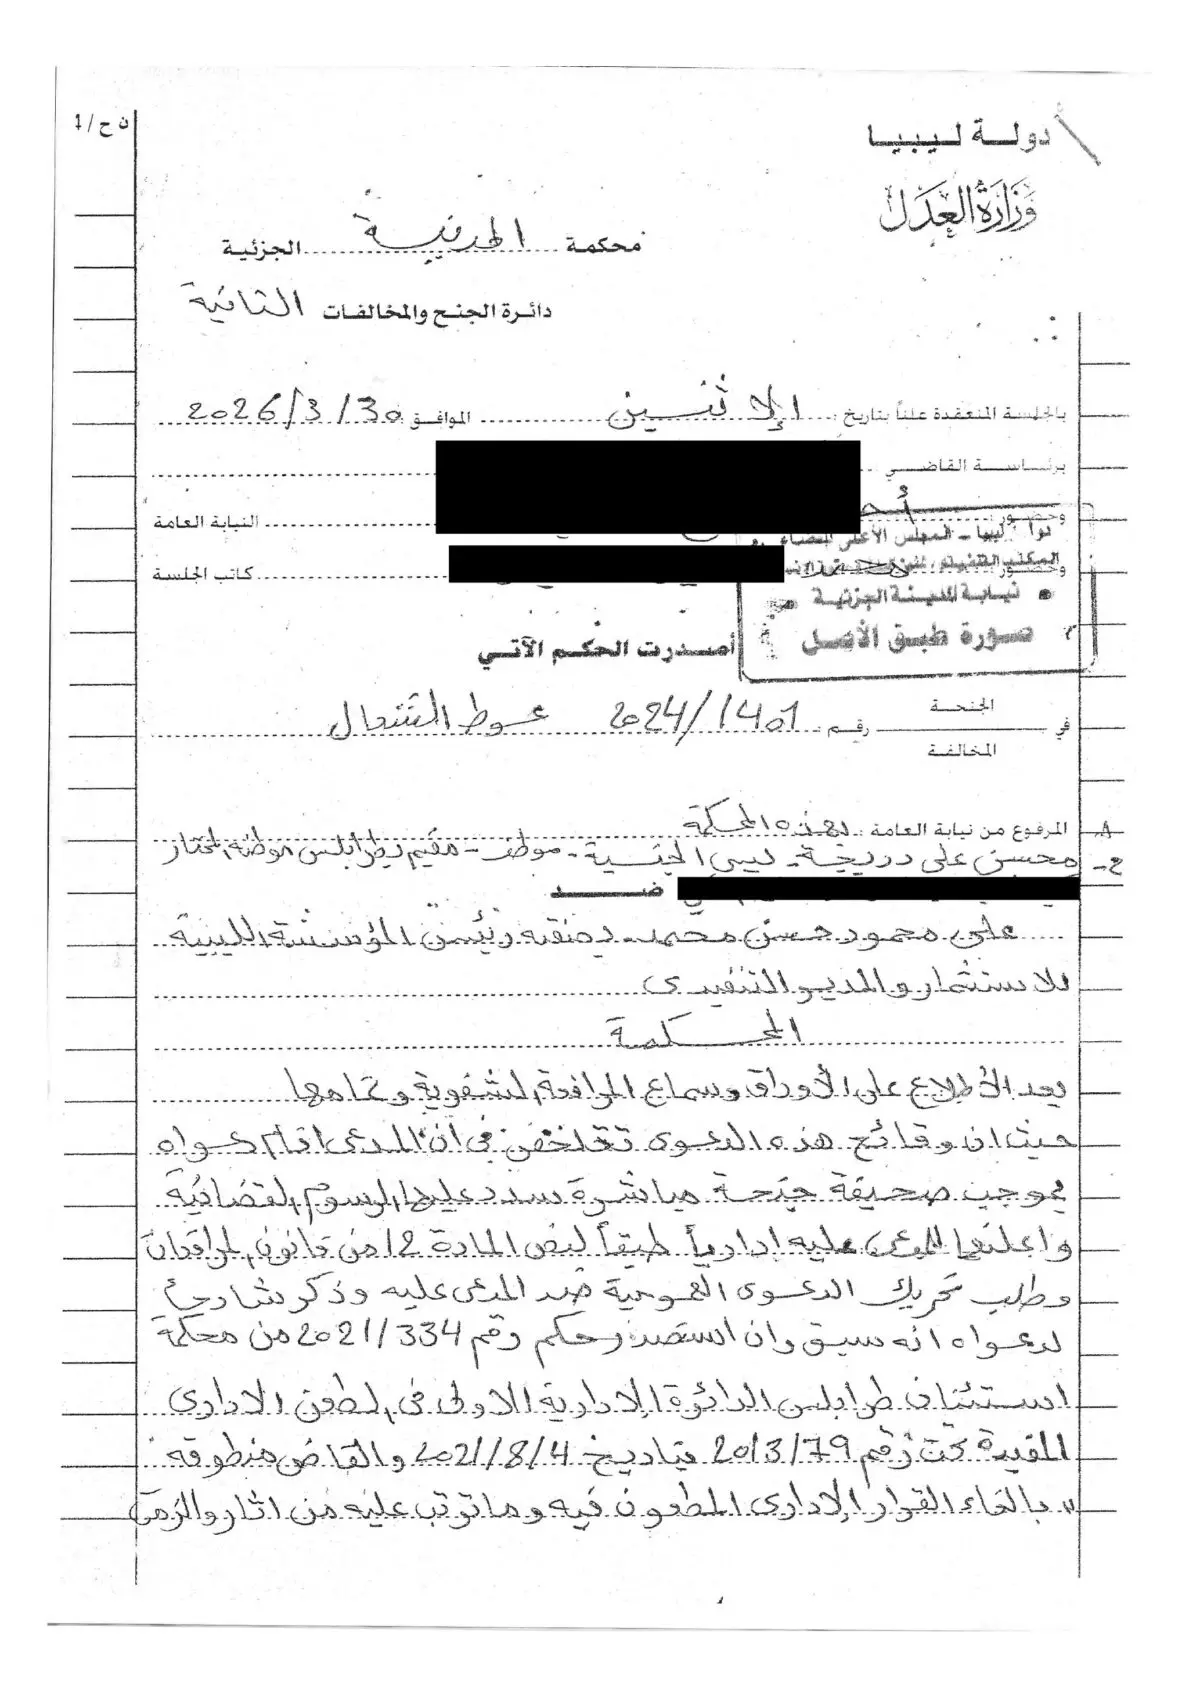 ن ح/1
دولة ليبيا
وزارة العدل
محكمة المدنية الجزئية
دائرة الجنح والمخالفات الثانية
بالجلسة المنعقدة علناً بتاريخ الإثنين الموافق 2026/3/30
برئاسة القاضي
وحضور النيابة العامة
ليبيا - المجلس الأعلى للقضاء
وحضور كاتب الجلسة
نيابة المدينة الجزئية
صورة طبق الأصل
أصدرت الحكم الآتي
في الجنحة المخالفة رقم 2024/1401 عوط الشعال
المرفوع من نيابة العامة بهذه المحكمة
محسن علي دريجة - ليبي الجنسية - موظف - مقيم بطرابلس موطنه المختار
ضد
على محمود حسن محمد - بصفته رئيس المؤسسة الليبية
للاستثمار والمدير التنفيذى
المحكمة
بعد الأطلاع على الأوراق وسماع المرافعة الشفوية وتمامها
حيث ان وقائع هذه الدعوى تتلخص فى ان المدعى اقام دعواه
بموجب صحيفة جنحة مباشرة سدد عليها الرسوم القضائية
واعلنها للمدعى عليه إدارياً طبقاً لنص المادة 12 من قانون المرافعات
وطلب تحريك الدعوى العمومية ضد المدعى عليه وذكر شارحاً
لدعواه انه سبق وان استصدر حكم رقم 2021/334 من محكمة
استئناف طرابلس الدائرة الإدارية الاولى فى الطعن الادارى
المقيدة تحت رقم 2013/79 بتاريخ 2021/8/4 والقاضى منطوقه :
" بالغاء القرار الإدارى المطعون فيه وما ترتب عليه من اثار والزمت